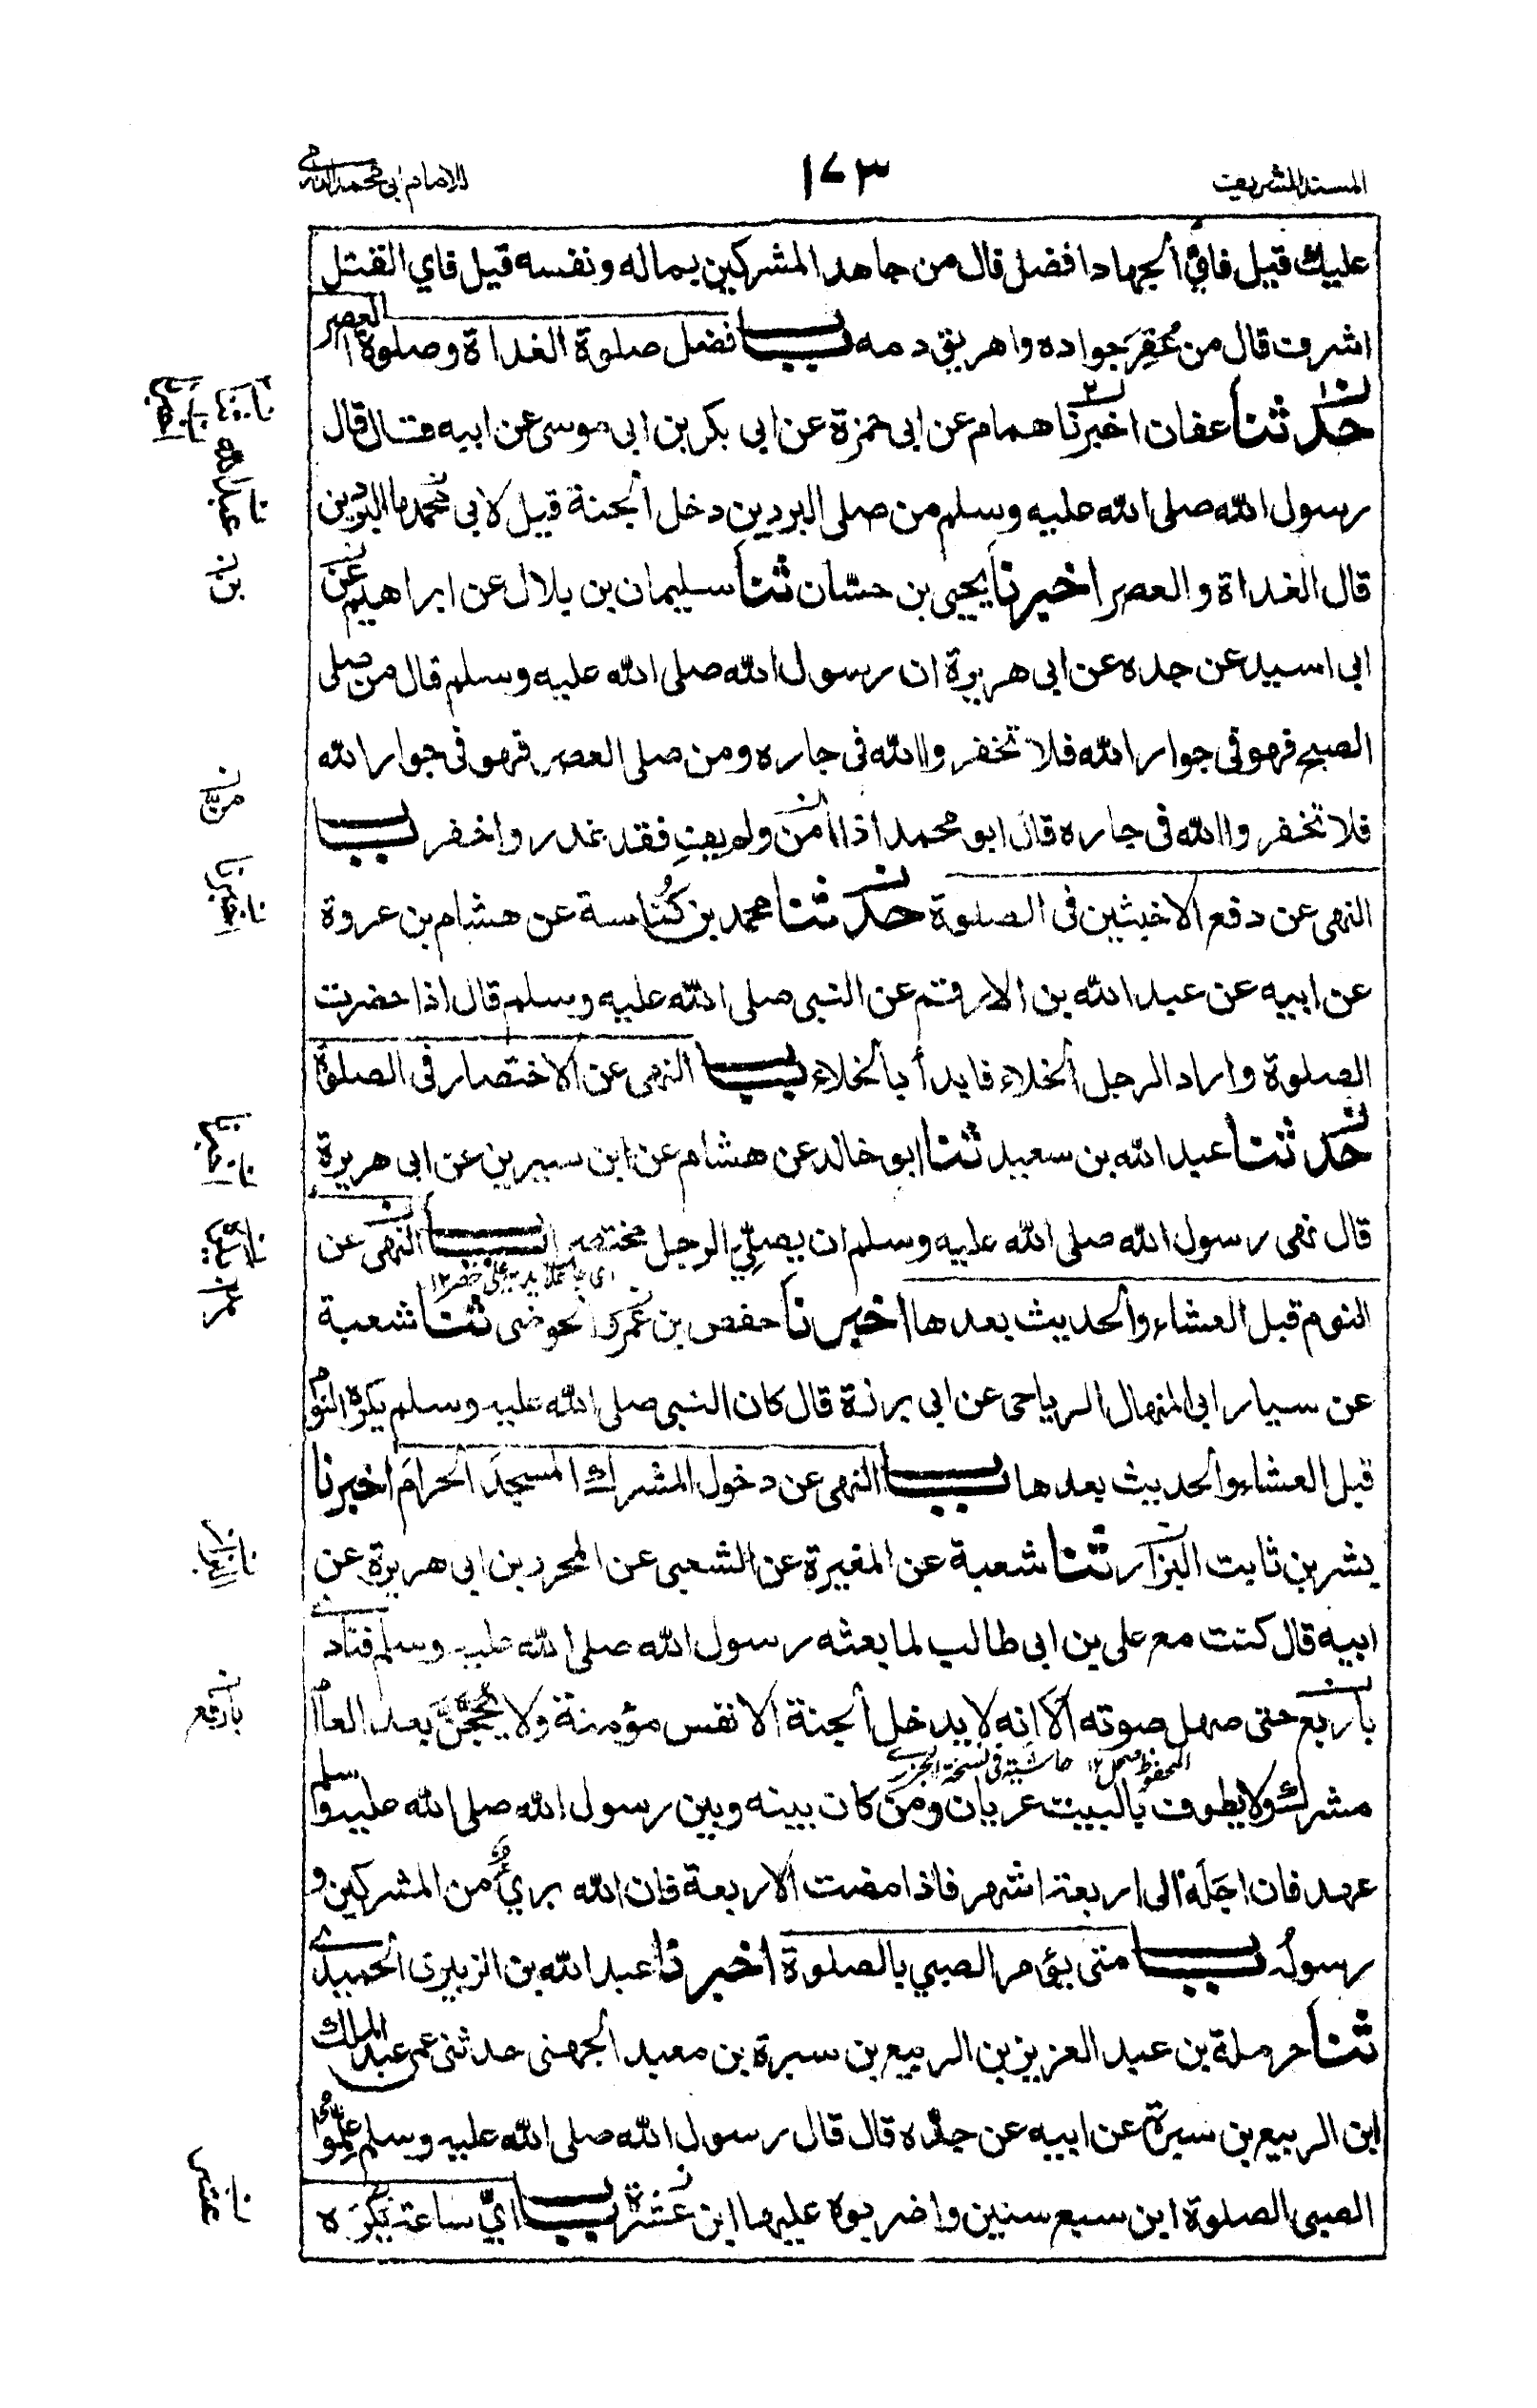 المسند الشريف
١٧٣
للامام ابي محمد الدارمي
عليك قيل فاي الجهاد افضل قال من جاهد المشركين بماله ونفسه قيل فاي القتل
اشرف قال من عُقِرَ جواده واهريق دمه باب فضل صلوة الغداة وصلوة العصر
حدثنا عفان اخبرنا همام عن ابى حمزة عن ابى بكر بن ابى موسى عن ابيه قال قال
رسول الله صلى الله عليه وسلم من صلى البردين دخل الجنة قيل لابى محمد ما البردين
قال الغداة والعصر اخبرنا يحيى بن حسّان ثنا سليمان بن بلال عن ابراهيم عن
ابى اسيد عن جده عن ابى هريرة ان رسول الله صلى الله عليه وسلم قال من صلى
الصبح فهو فى جوار الله فلا تخفروا الله فى جاره ومن صلى العصر فهو فى جوار الله
فلا تخفروا الله فى جاره قال ابو محمد اذا أمن ولم يفِ فقد غدر واخفر باب
النهى عن دفع الاخبثين فى الصلوة حدثنا محمد بن كُناسة عن هشام بن عروة
عن ابيه عن عبد الله بن الارقم عن النبى صلى الله عليه وسلم قال اذا حضرت
الصلوة واراد الرجل الخلاء فابدأ بالخلاء باب النهى عن الاختصار فى الصلوة
حدثنا عبد الله بن سعيد ثنا ابو خالد عن هشام عن ابن سيرين عن ابى هريرة
قال نهى رسول الله صلى الله عليه وسلم ان يصلِّي الرجل مختصرا باب النهى عن
النوم قبل العشاء والحديث بعدها اخبرنا حفص بن عُمر الحوضى ثنا شعبة
عن سيار ابى المنهال الرياحى عن ابى برزة قال كان النبى صلى الله عليه وسلم يكره النوم
قبل العشاء والحديث بعدها باب النهى عن دخول المشرك المسجدَ الحرامَ اخبرنا
بشر بن ثابت البزار ثنا شعبة عن المغيرة عن الشعبى عن المحرر بن ابى هريرة عن
ابيه قال كنت مع على بن ابى طالب لما بعثه رسول الله صلى الله عليه وسلم فنادى
باربع حتى صهل صوته اَلَا اِنه لا يدخل الجنة الا نفس مؤمنة ولا يحجّنّ بعد العام
المحفوظ صحل ١٢ حاشية فى نسخة الجزرى
مشرك ولا يطوف بالبيت عريان ومن كان بينه وبين رسول الله صلى الله عليه وسلم
عهد فان اجَلَهُ الى اربعة اشهر فاذا مضت الاربعة فان الله برئ من المشركين و
رسولُه باب متى يؤمر الصبي بالصلوة اخبرنا عبد الله بن الزبيرى الحميدى
ثنا حرملة بن عبد العزيز بن الربيع بن سبرة بن معبد الجهنى حدثنى عمى عبد الملك
ابن الربيع بن سبرة عن ابيه عن جدّه قال قال رسول الله صلى الله عليه وسلم علّموا
الصبى الصلوة ابن سبع سنين واضربوه عليها ابن عشرة باب ايّ ساعة يكره